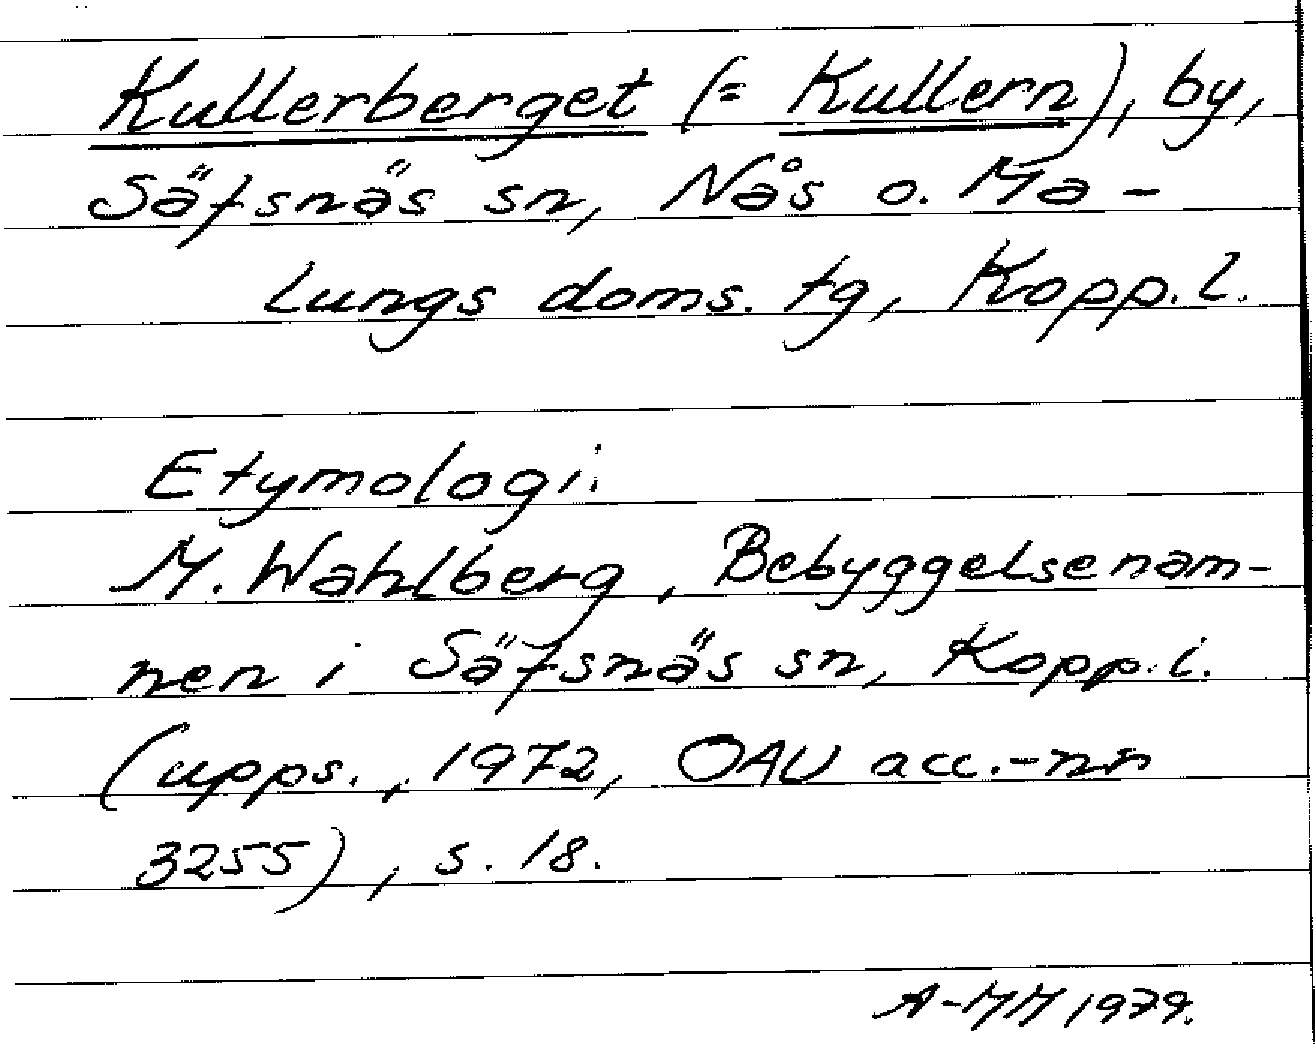 Kullerberget (= Kullern), by,
Säfsnäs sn, Nås o. Ma-
lungs doms. tg, Kopp. l.
Etymologi:
M. Wahlberg, Bebyggelsenam-
nen i Säfsnäs sn, Kopp. l.
(upps., 1972, OAU acc.-nr
3255), s. 18.
A-MM 1979.